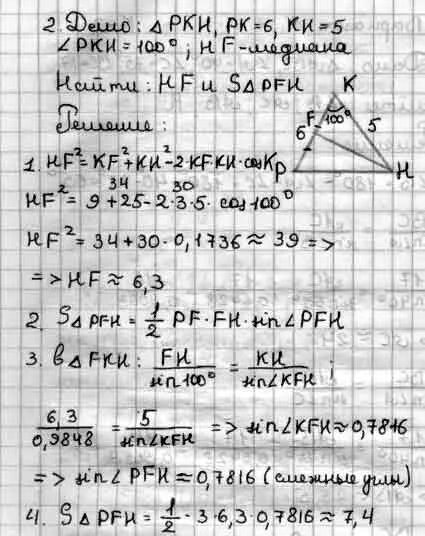 2. Дано: △ PKH, PK=6, KH=5
∠PKH=100°; HF-медиана
Найти: HF и S△ PFH
Решение:
K
F
100°
6
5
P
H
1. HF²=KF²+KH²-2·KF·KH·cosK
34 30
HF²= 9+25-2·3·5· cos100°
HF²= 34+30·0,1736≈39 =>
=> HF≈ 6,3
2. S△PFH = 1/2 PF·FH·sin∠PFH
3. в△FKH: FH/sin100° = KH/sin∠KFH ;
6,3/0,9848 = 5/sin∠KFH => sin∠KFH≈0,7816
=> sin∠PFH ≈0,7816 (смежные углы)
4. S△PFH= 1/2 ·3·6,3·0,7816≈7,4